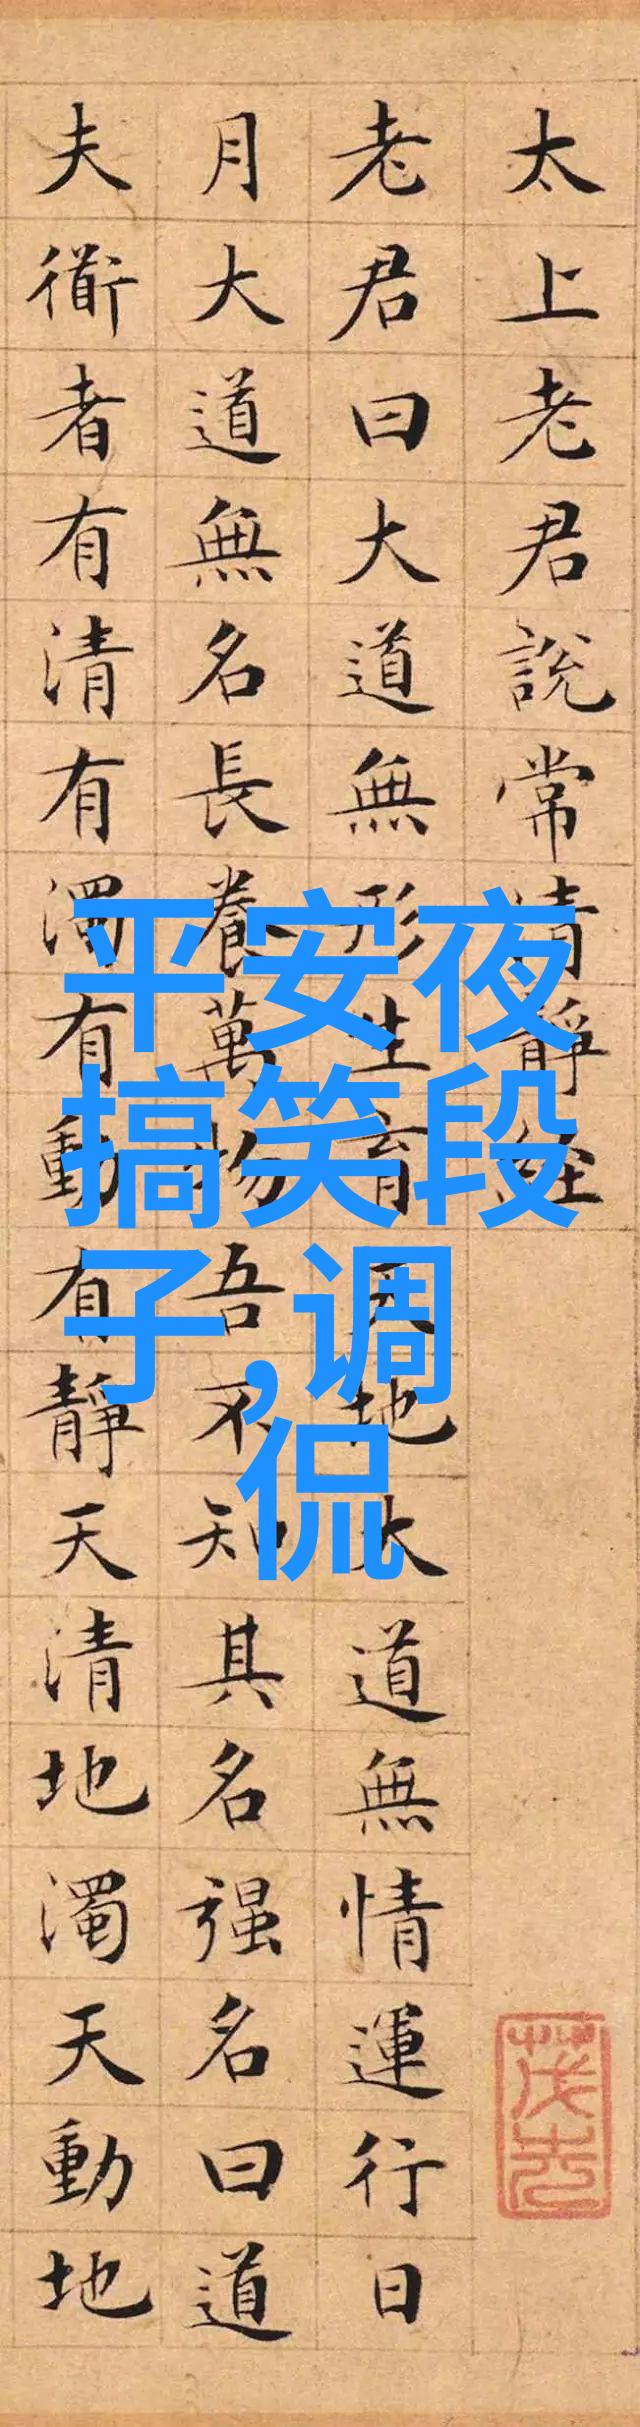 太上老君說常清靜経
老君曰大道無形生育天地大道無情運行日
月大道無名長養萬物吾不知其名强名曰道
夫衜者有清有濁有動有靜天清地濁天動地
平安夜
搞笑段
子,调
侃